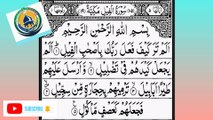 سُورَةُ الْفِيلِ مَكِّيَّةٌ
بِسْمِ اللهِ الرَّحْمٰنِ الرَّحِيْمِ
اَلَمْ تَرَ كَيْفَ فَعَلَ رَبُّكَ بِاَصْحٰبِ الْفِيْلِ اَلَمْ
يَجْعَلْ كَيْدَهُمْ فِيْ تَضْلِيْلٍ وَّاَرْسَلَ عَلَيْهِمْ
طَيْرًا اَبَابِيْلَ تَرْمِيْهِمْ بِحِجَارَةٍ مِّنْ سِجِّيْلٍ
فَجَعَلَهُمْ كَعَصْفٍ مَّاْكُوْلٍ
SUBSCRIBE